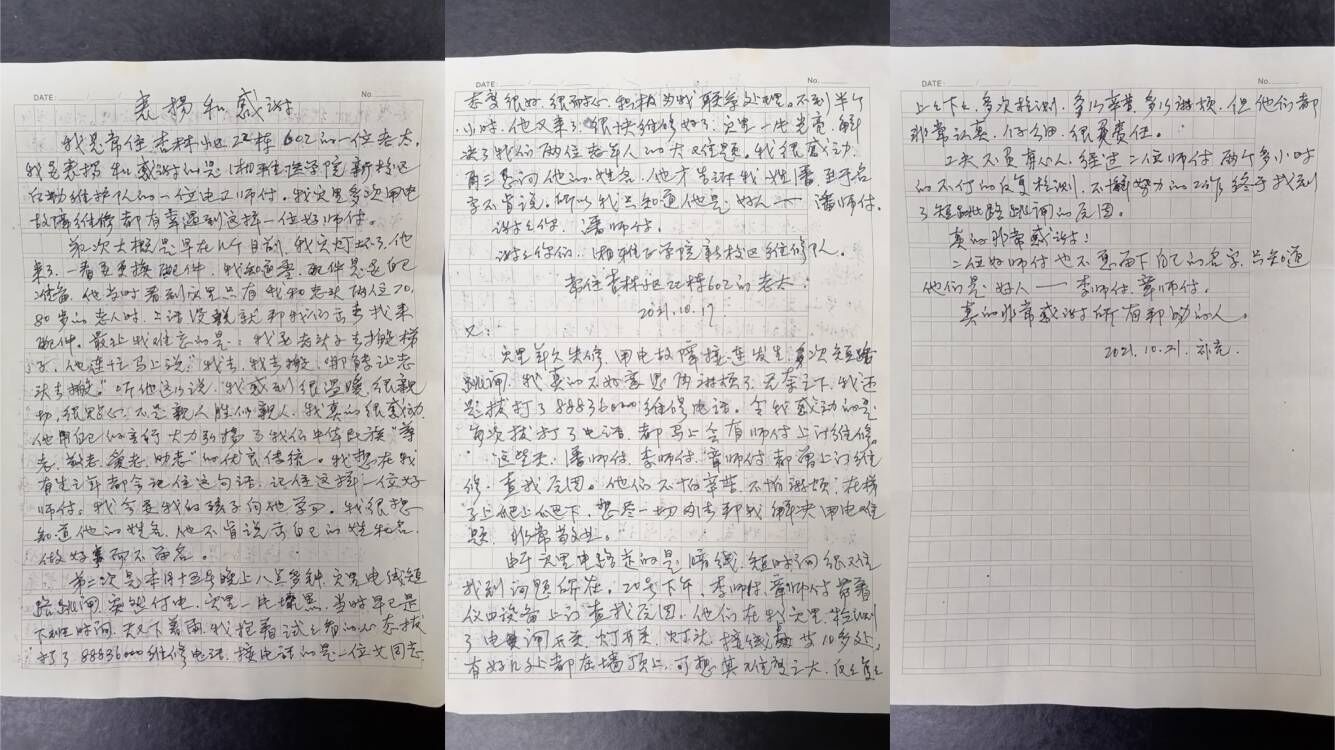 DATE: / / No.
表扬和感谢
我是常住杏林小区22栋602的一位老太。
我是表扬和感谢的是:湘雅医学院新校区
后勤维护队的一位电工师付。我家里多次用电
故障维修都有幸遇到这样一位好师付。
第一次大概是早在几个月前,我家灯坏了,他
来了一看是更换配件,我知道要配件是自己
准备,他当时看到家里只有我和老头两位70、
80岁的老人时,二话没说就帮我们去找来
配件。最让我难忘的是:我要老头子去搬梯
子,他连忙马上说"我去,我去搬,哪能让老
头去搬"。听他这么说,我感到很温暖,很亲
切,很贴心,不是亲人胜似亲人,我真的很感动
他用自己的言行大力弘扬了我们中华民族"尊
老、敬老、爱老、助老"的优良传统。我想在我
有生之年都会记住这句话,记住这样一位好
师付。我会要我的孩子向他学习。我很想
知道他的姓名,他不肯说出自己的姓和名。
做好事而不留名。
第二次是本月十五号晚上八点多钟,家里电线短
路跳闸,突然付电,家里一片漆黑,当时早已是
下班时间,天又下着雨,我抱着试之看的心态拔
打了88836000维修电话,接电话的是一位女同志,
DATE: / / No.
态度很好,很耐心,积极为我联系处理。不到半个
小时,他又来了,很快维修好了,家里一片光亮,解
决了我们两位老年人的大难题。我很感动,
再三恳问他的姓名,他才告诉我姓潘,至于名
字不肯说,所以我只知道他是好人——潘师付。
谢之你,潘师付。
谢之你们,湘雅医学院新校区维修队。
常住杏林小区22栋602的老太。
2021.10.17
又:
家里年久失修,用电故障接连发生,多次短路
跳闸,我真的不好意思再麻烦了,无奈之下,我还
是拔打了88836000维修电话。令我感动的是:
每次拔打了电话,都马上会有师付上门维修。
这些天,潘师付、李师付、章师付都曾上门维
修,查找原因。他们不怕辛苦,不怕麻烦,在梯
子上爬上爬下,想尽一切办法帮我解决用电难
题,非常敬业。
由于家里电路走的是暗线,短时间很难
找到问题所在。20号下午,李师付、章师付带着
仪器设备上门查找原因。他们在我家里检测
了电闸开关,灯开关,灯头,接线等共10多处,
有好几处都在墙顶上,可想其难度之大,反之复之
DATE: / / No.
上上下上,多次检测,多么辛苦,多么麻烦,但他们都
非常认真,仔细,很负责任。
工夫不负有心人,经过二位师付两个多小时
的不付的反复检测,不懈努力的工作,终于找到
了短路跳闸的原因。
真的非常感谢!
二位好师付也不愿留下自己的名字,只知道
他们是好人——李师付、章师付。
真的非常感谢所有帮助的人。
2021.10.21.补充